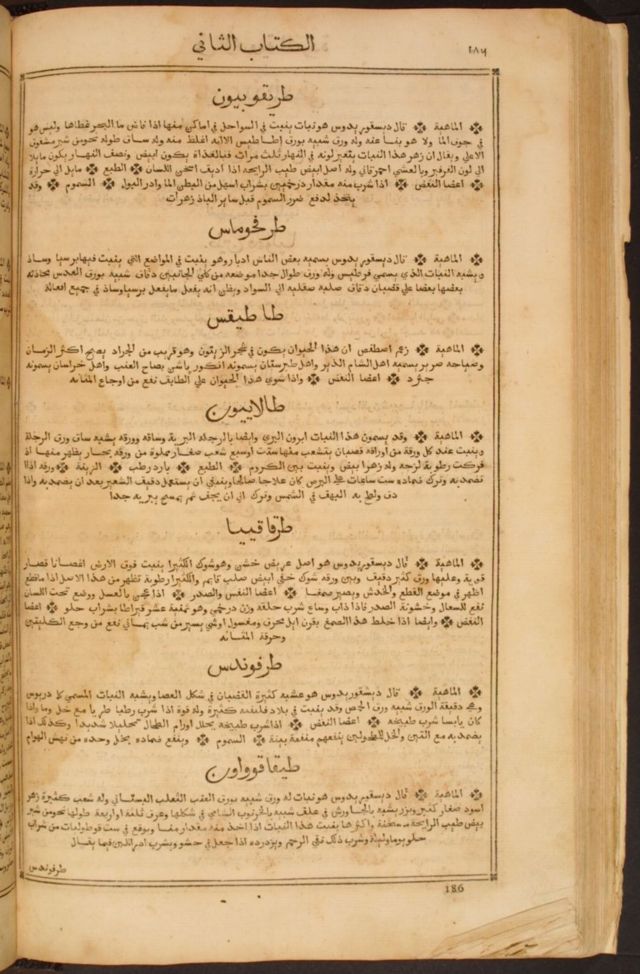 الكتاب الثاني
١٨٦
طريقوبيون
الماهية قال ديسقوريدوس هو نبات ينبت في السواحل في اماكن منها اذا فاض ما البحر غطاها وليس هو
في جوف الما ولا هو بناء عنه وله ورق شبيه بورق اطاطيس الا انه اغلظ منه وله ساق طوله نحو من شبر مشقوق
الاعلى ويقال ان زهر هذا النبات يتغير لونه في النهار ثلث مرات فبالغداة يكون ابيض ونصف النهار يكون مايلا
الى لون الفرفير وبالعشي احمر قاني وله اصل ابيض طيب الرايحة اذا اذيف اسخن اللسان الطبع مايل الى حرارة
اعضا النفض اذا شرب منه مقدار درخمين بشراب اسهل من البطن الما وادر البول السموم وقد
يتخذ لدفع ضرر السموم قبل ساير الباذزهرات
طرفحوماس
الماهية قال ديسقوريدوس يسميه بعض الناس ادياروهو ينبت في المواضع التي ينبت فيها برسياوساذ
ويشبه النبات الذي يسمى فوطيس وله ورق طوال جدا موضعه من كلي الجانبين دقاق شبيه بورق العدس محاذته
بعضها بعضا على قضبان دقاق صلبه صقليه الى السواد ويظن انه يفعل ما يفعل برسياوساذ في جميع افعاله
طاطيقس
الماهية زعم اصطفن ان هذا الحيوان يكون في شجر الزيتون وهو قريب من الجراد يصيح اكثر الزمان
وصياحه صرير يسميه اهل الشام الذيز واهل طبرستان يسمونه انكور ياشى يصاح العنب واهل خراسان يسمونه
جثرد اعضا النفض واذا شوي هذا الحيوان على الطابق نفع من اوجاع المثانه
طالابيون
الماهية وقد يسمون هذا النبات ابرون البري وايضا بالرجلة البرية وساقه وورقه يشبه ساق ورق الرجلة
وينبت عند كل ورقة من اوراقه قضبان يتشعب منها ست او سبع شعب صغار مملوة من ورقه يحار يظهر منها اذا
فركت رطوبة لزجه وله زهرا بيض وينبت بين الكروم الطبع يارد رطب الزينة ورقه اذا
تضمد به وترك ضماده ست ساعات على البرص كان علاجا صالحا وينبغي ان يستعمل دقيق الشعير بعد ان يضمد به واذا
دق ولطخ به البهق في الشمس وترك الى ان يجف ثم يمسح يبريه جدا
طرقاقيبا
الماهية قال ديسقوريدوس هو اصل عريض خشي وهو شوك الكثيرا ينبت فوق الارض اغصانا قصار
قوية وعليها ورق كثير دقيق وبين ورقه شوك خفي ابيض صلب قايم والكثيرا رطوبة تظهر من هذا الاصل اذا ماقطع
اظهر في موضع القطع والخدش ويصير صمغا اعضا النفس والصدر اذا عجن بالعسل ووضع تحت اللسان
نفع للسعال وخشونة الصدر فاذا ذاب وساغ شرب حلقه وزن درخمي وهو ثمنية عشر قيراطا بشراب حلو اعضا
النفض وايضا اذا خلط هذا الصمغ بقرن ايل محرق ومغسول او شي يسير من شب يماني نفع من وجع الكليتين
وحرقة المثانه
طرفوندس
الماهية قال ديسقوريدوس هو عشبه كثيرة القضبان في شكل العصا ويشبه النبات المسمى كادريوس
وهي دقيقة الورق شبيه ورق الحمص وقد ينبت في بلاد قليقيه كثيرة وله قوة اذا شرب رطبا طريا مع خل وما واذا
كان يابسا شرب طبيخه اعضا النفض اذا شرب طبيخه يحلل اورام الطحال تحليلا شديدا وكذلك اذا
يضمد به مع التين والخل للمطحولين ينفعهم منفعة بينة السموم وينفع ضماده بخل وحده من نهش الهوام
طيقاقوواون
الماهية قال ديسقوريدوس هو نبات له ورق شبيه بورق العنب الثعلب البستاني وله شعب كثيرة زهر
اسود صغار كثير وبزر يشبه بالجاورش في غلف شبيه بالخرنوب الشامي في شكلها وعرق ثلثه او اربعة طولها نحو من شبر
بيض طيب الرايحة مسخنة واكثرها ينبت هذا النبات اذا اخذ منه مقدار منا وبوقع في ست قوطوليات من شراب
حلو يوما وليلة وشرب ذلك نقى الرحم ويزدرده اذا جعل في حشو ويشرب ادر اللبن فيما يقال
طرفوندس
186